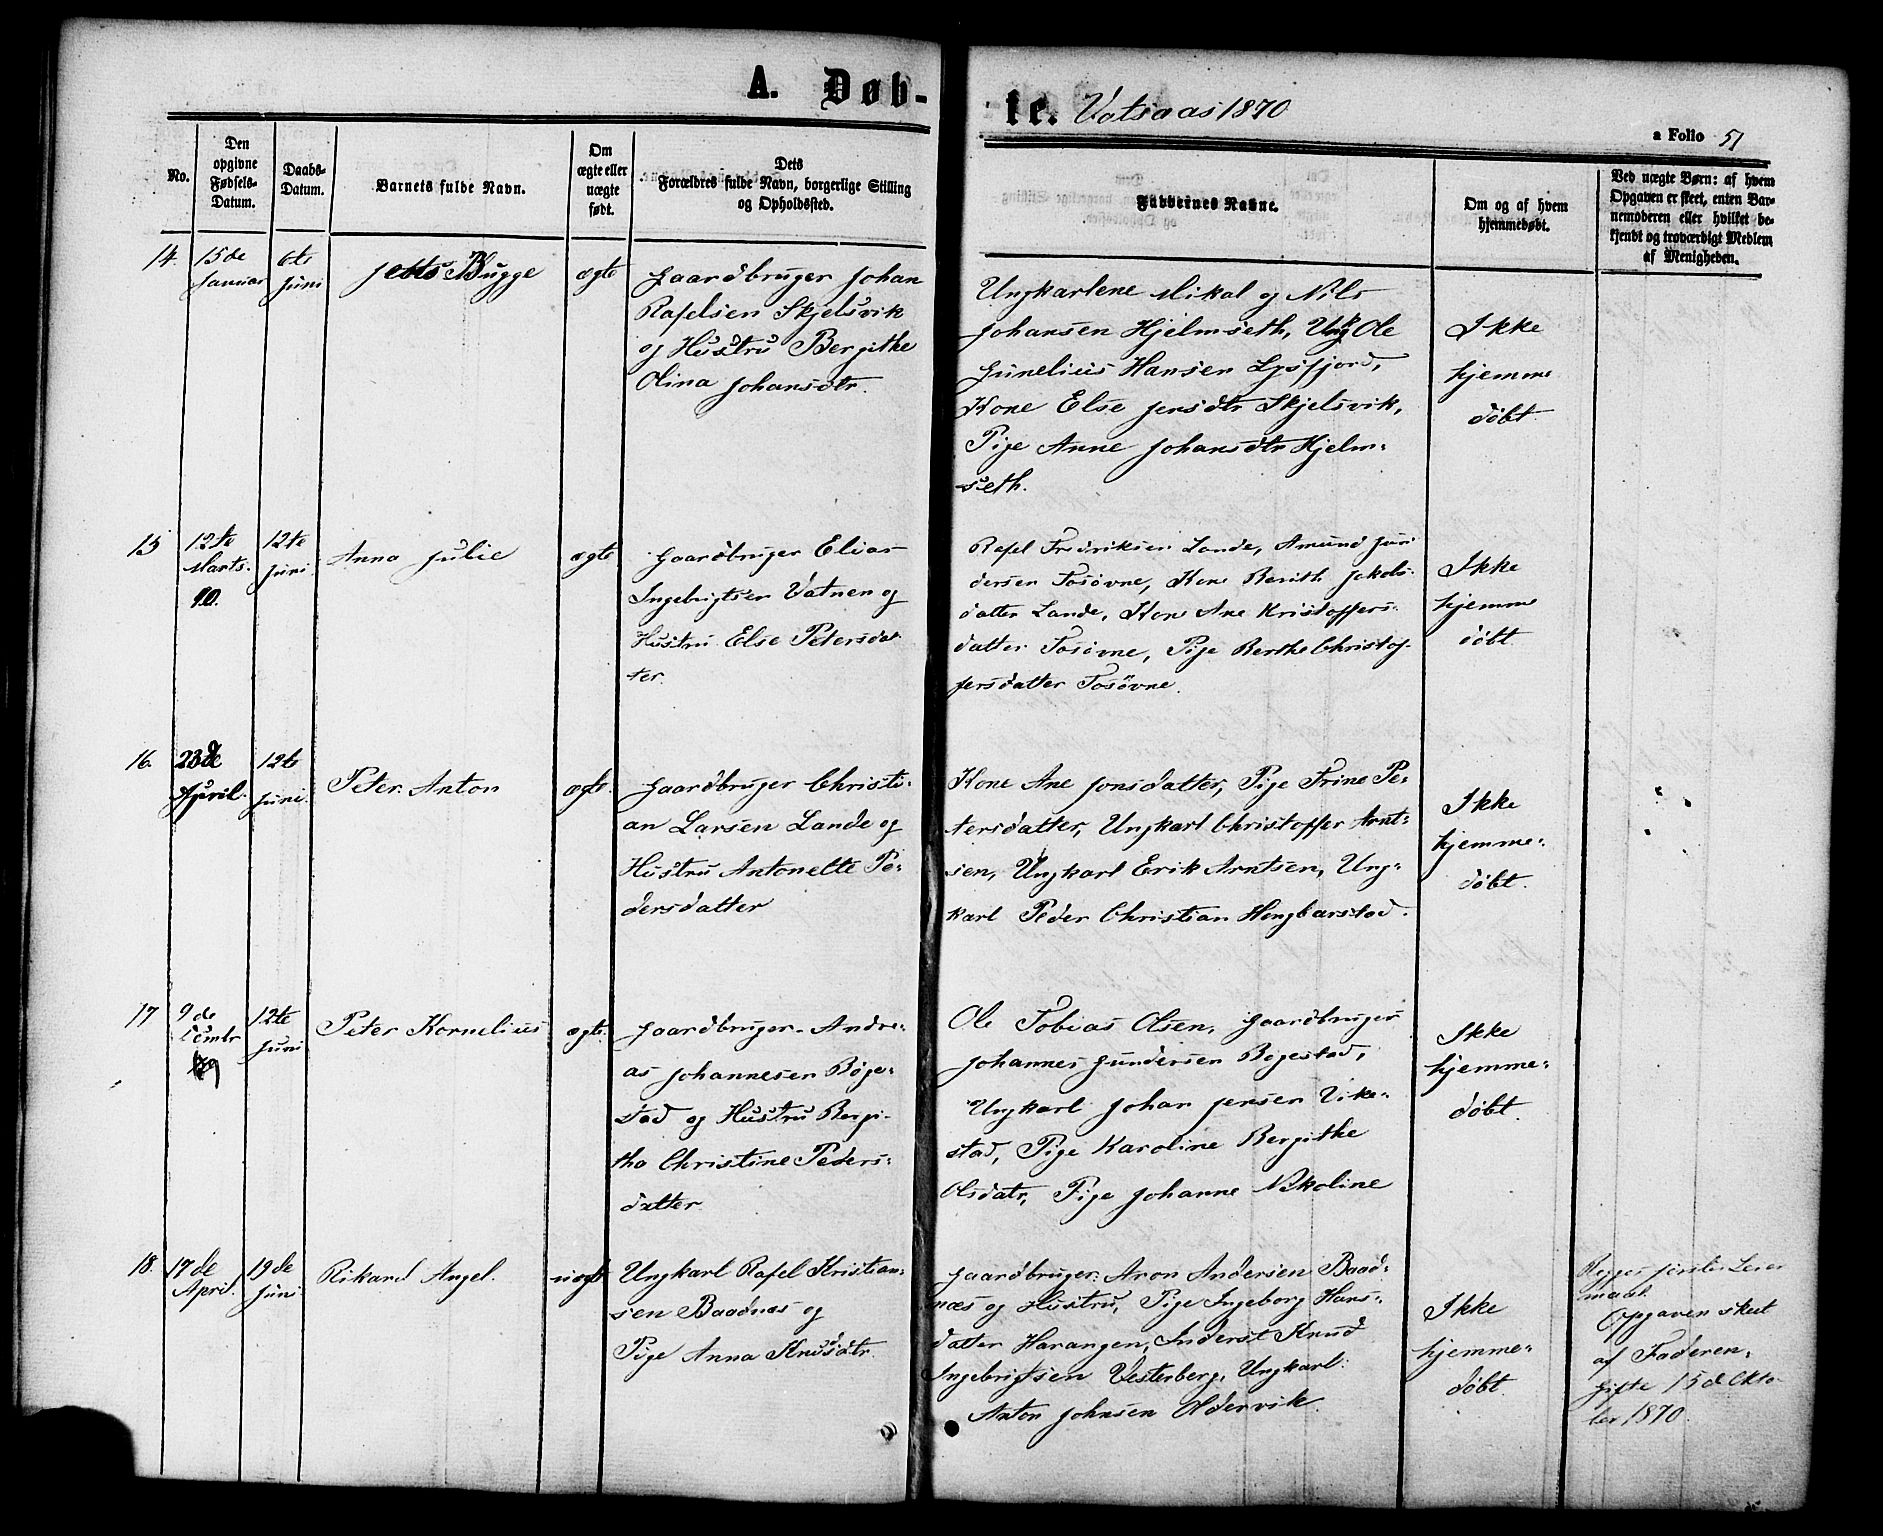 A. Døb-
te. Vatsaas 1870
a Folio 51
No.
Den
opgivne
Fødsels-
Datum.
Daabs-
Datum.
Barnets fulde Navn.
Om
ægte eller
uægte
født.
Dets
Forældres fulde Navn, borgerlige Stilling
og Opholdssted.
Faddernes Navne.
Om og af hvem
hjemmedøbt.
Ved uægte Børn: af hvem
Opgaven er skeet, enten Bar-
nemoderen eller hvilket be-
kjendt og troværdigt Medlem
af Menigheden.
14.
15de
Januar
6te
Juni
Bugge
ægte
Gaardbruger Johan
Rafelsen Skjelsvik
og Hustru Bergithe
Olina Johansdtr.
Ungkarlene Mikal og Nils
Johansen Hjelmseth, Ungk Ole
Junelius Hansen Lysfjord,
Kone Else Jensdtr Skjelsvik,
Pige Anne Johansdtr Hjelm-
seth.
Ikke
hjemme
døbt
15
12te
Marts.
70.
12te
Juni
Anna Julie
ægte
Gaardbruger Elias
Ingebrigtsen Vatnen og
Hustru Else Petersdat
ter.
Rafel Fredriksen Lande, Amund
dersen Tosövne, Kone Berith Jakobs-
datter Lande, Kone Ane Kristoffers-
datter Tosövne, Pige Berthe Christof-
fersdatter Tosövne.
Ikke
hjemme
døbt
16.
23de
April.
12te
Juni.
Peter Anton
ægte.
Gaardbruger Christi-
an Larsen Lande og
Hustru Antonette Pe-
dersdatter
Kone Ane Jonsdatter, Pige Trine Pe-
tersdatter, Ungkarl Christoffer Arnt-
sen, Ungkarl Erik Arntsen, Ung-
karl Peder Christian
Ikke
hjemme-
døbt.
17
9de
12te
Juni
Peter Kornelius
ægte.
Gaardbruger Andre-
as Johannesen Bøge-
stad og Hustru Bergi-
tha Christine Peders-
datter
Ole Tobias Olsen, Gaardbruger
Johannes Gundersen Bøgestad,
Ungkarl Johan Jensen Vike-
stad, Pige Karoline Bergithe
Olsdatr, Pige Johanne Nikoline
Ikke
hjemme-
døbt.
18.
17de
April.
19de
Juni
Rikard Angel.
uægte
Ungkarl Rafel Kristian-
sen Baadnæs og
Pige Anna Knudsdtr.
Gaardbruger Aron Andersen Baad-
næs og Hustru, Pige Ingeborg Hans-
datter Harangen, Inderst Knud
Ingebrigtsen Vesterberg, Ungkarl
Anton Johnsen Oldervik.
Ikke
hjemme-
døbt.
Begges første Leier
maal.
Opgaven skeet
af Faderen.
Gifte 15de Okto-
ber 1870.